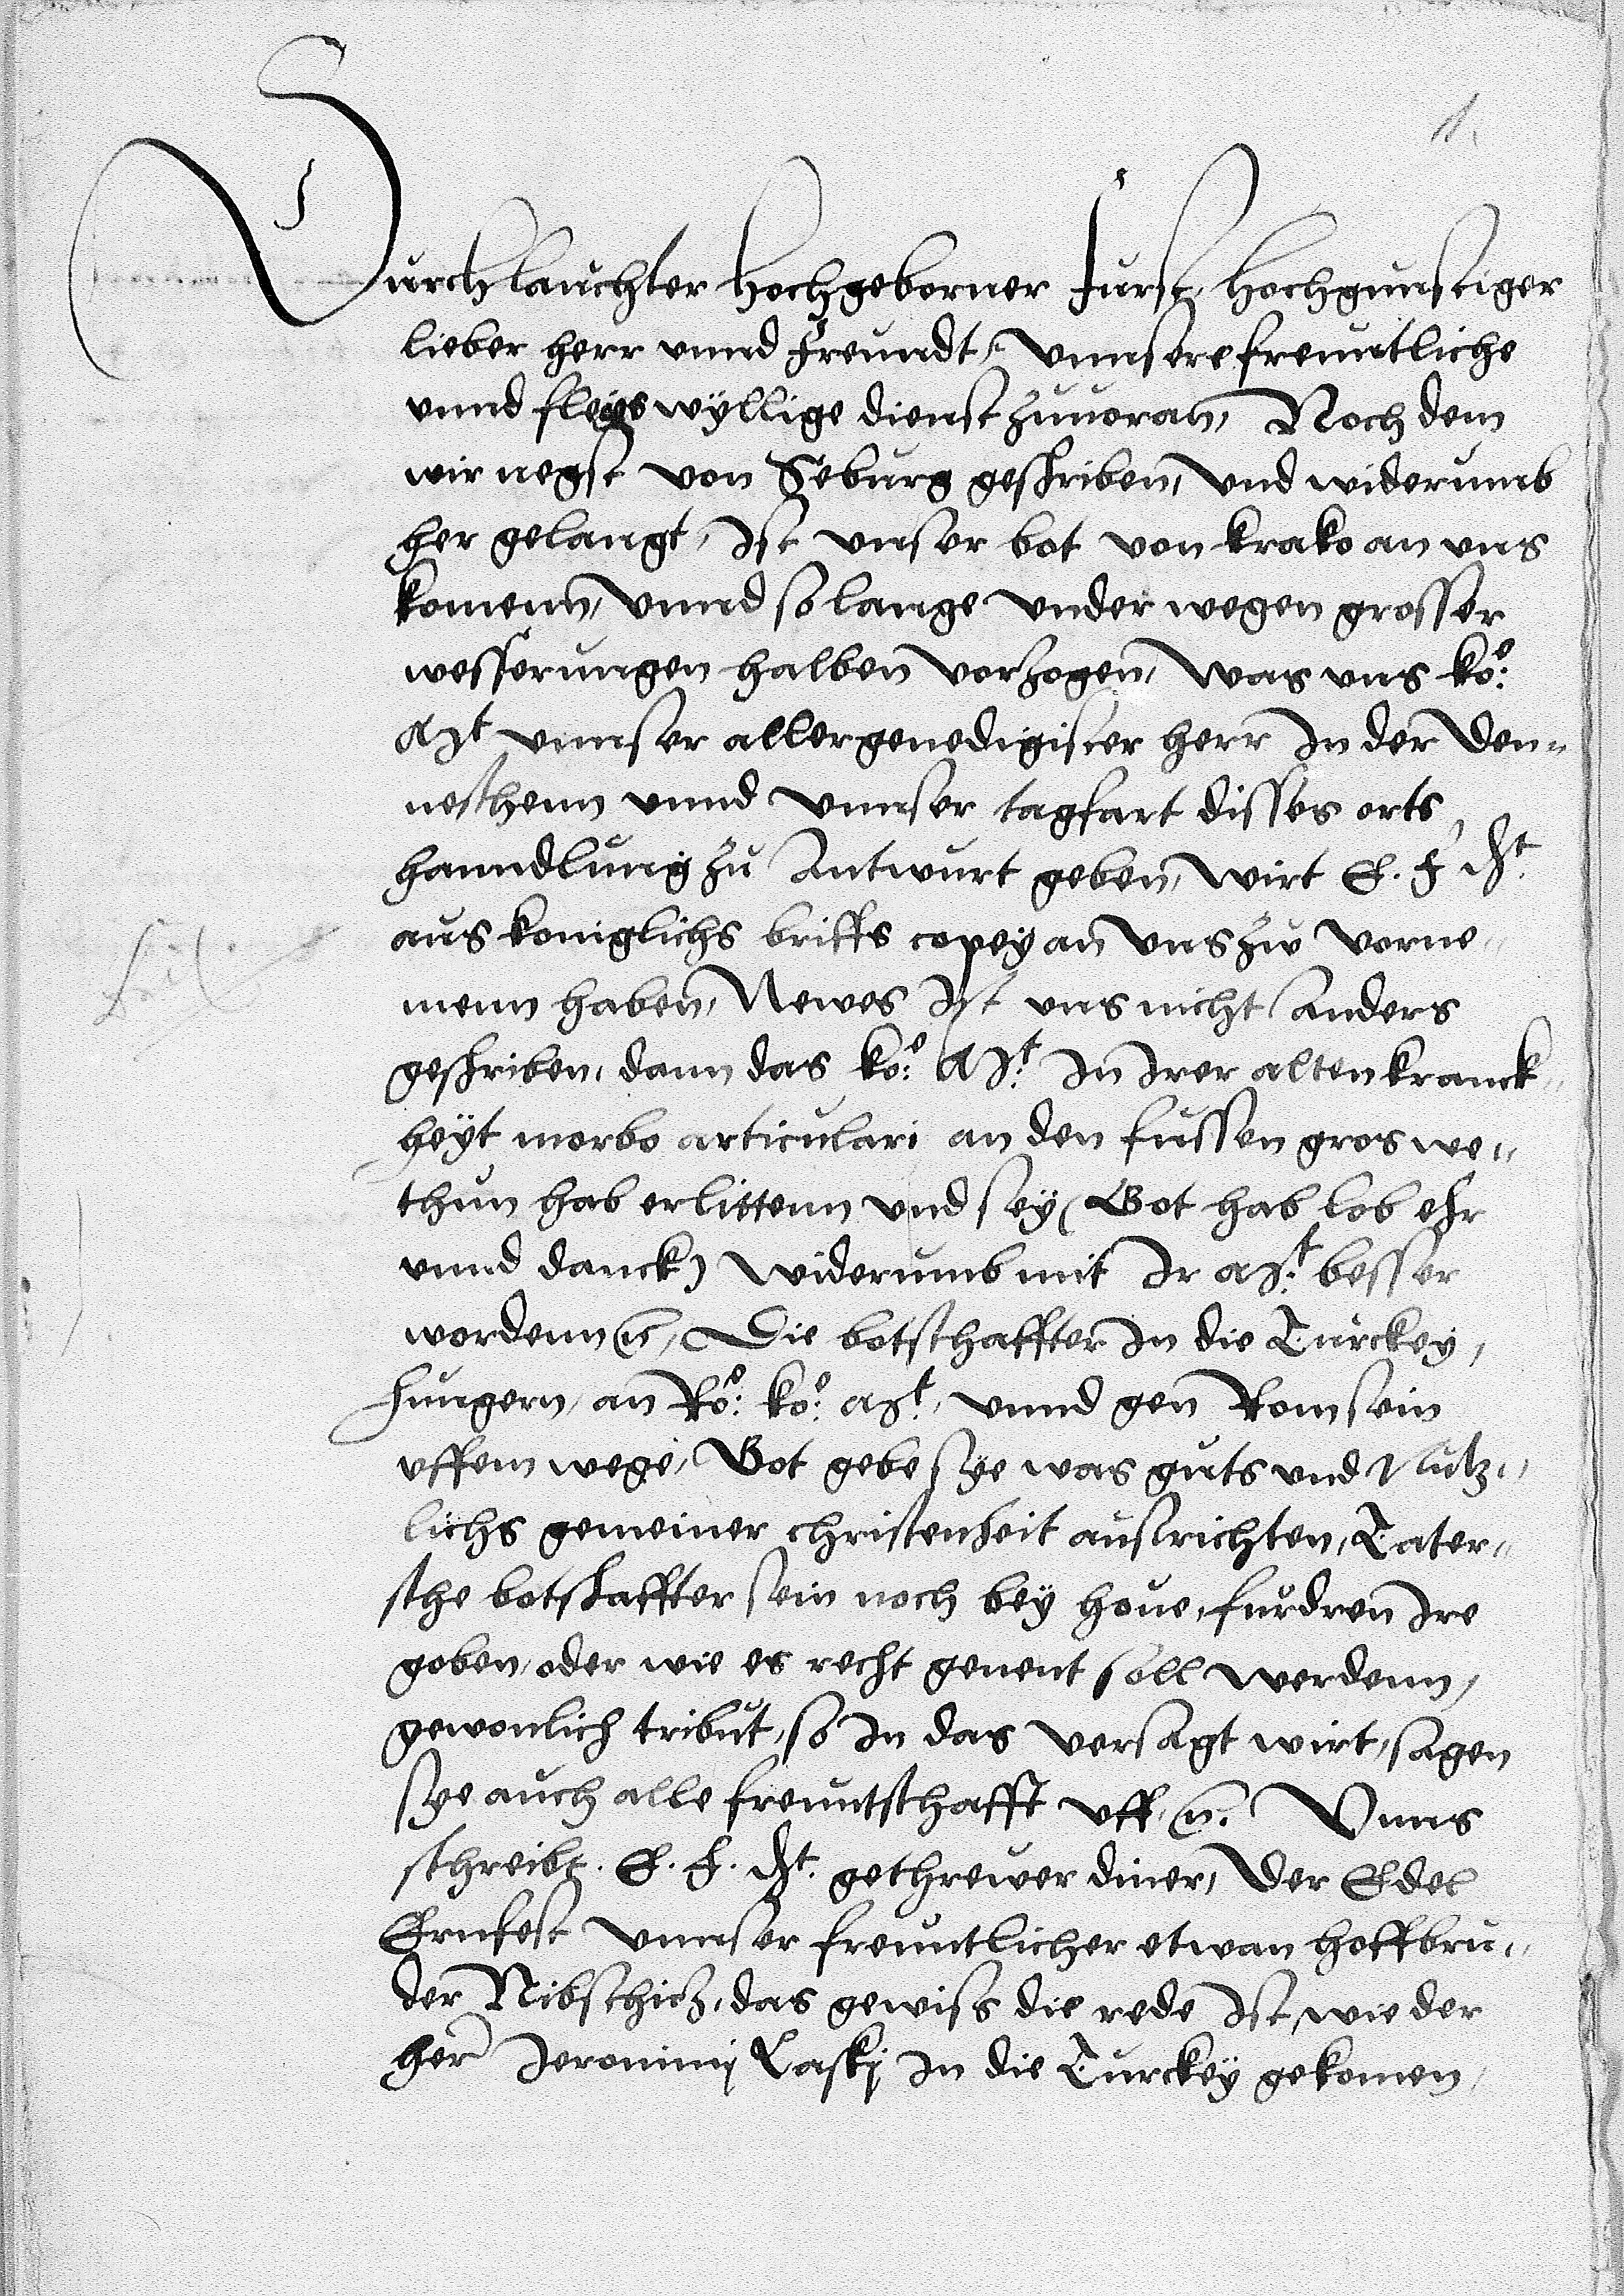 1.
Durchlauchter Hochgeborner Furst, Hochgunstiger
lieber Herr unnd Freundt, unnsere freuntliche
unnd fleys wÿllige dienst zuuoran, Noch dem
wir negst von Seburg geschriben, und widerumb
her gelangt, Ist unser bot von krako an uns
komenn, unnd so lange under wegen grosser
wesserungen halben vorzogen, was uns ko:
Mt unnser allergenedigister Herr In der Den-
neschenn unnd unnser tagfart disses orts
hanndlung zu Antwurt geben, wirt E. F. Dt.
aus koniglichs briffs copey an uns zw vorne-
menn haben, Newes Ist uns nicht Anders
geschriben, dann das ko: Mt. In Irer alten kranck-
heÿt morbo articulari an den fussen gros we-
thun hab erlittenn und seÿ (Got hab lob ehr
unnd danck) widerumb mit Ir Mt. besser
wordenn etc, Die botschaffter In die Turckey,
Hungern, an Ro: ko: Mt., unnd gen Rom sein
uffem wege, Got gebe sye was guts und Nutz-
lichs gemeiner christenheit ausrichten, Tater-
sche botschaffter sein noch beÿ Houe, furdren Ire
goben, oder wie es recht genent soll werdenn,
gewonlich tribut, so In das versagt wirt, sagen
sye auch alle freuntschafft uff etc. Unns
schreibt E. F. Dt. gethrewer diner, Der Edel
Ernfest unnser freuntlicher etwan hoffbru-
der Nibschicz, das gewiss die rede Ist, wie der
Her Jeronimj Laskj In die Turckeÿ gekomen,